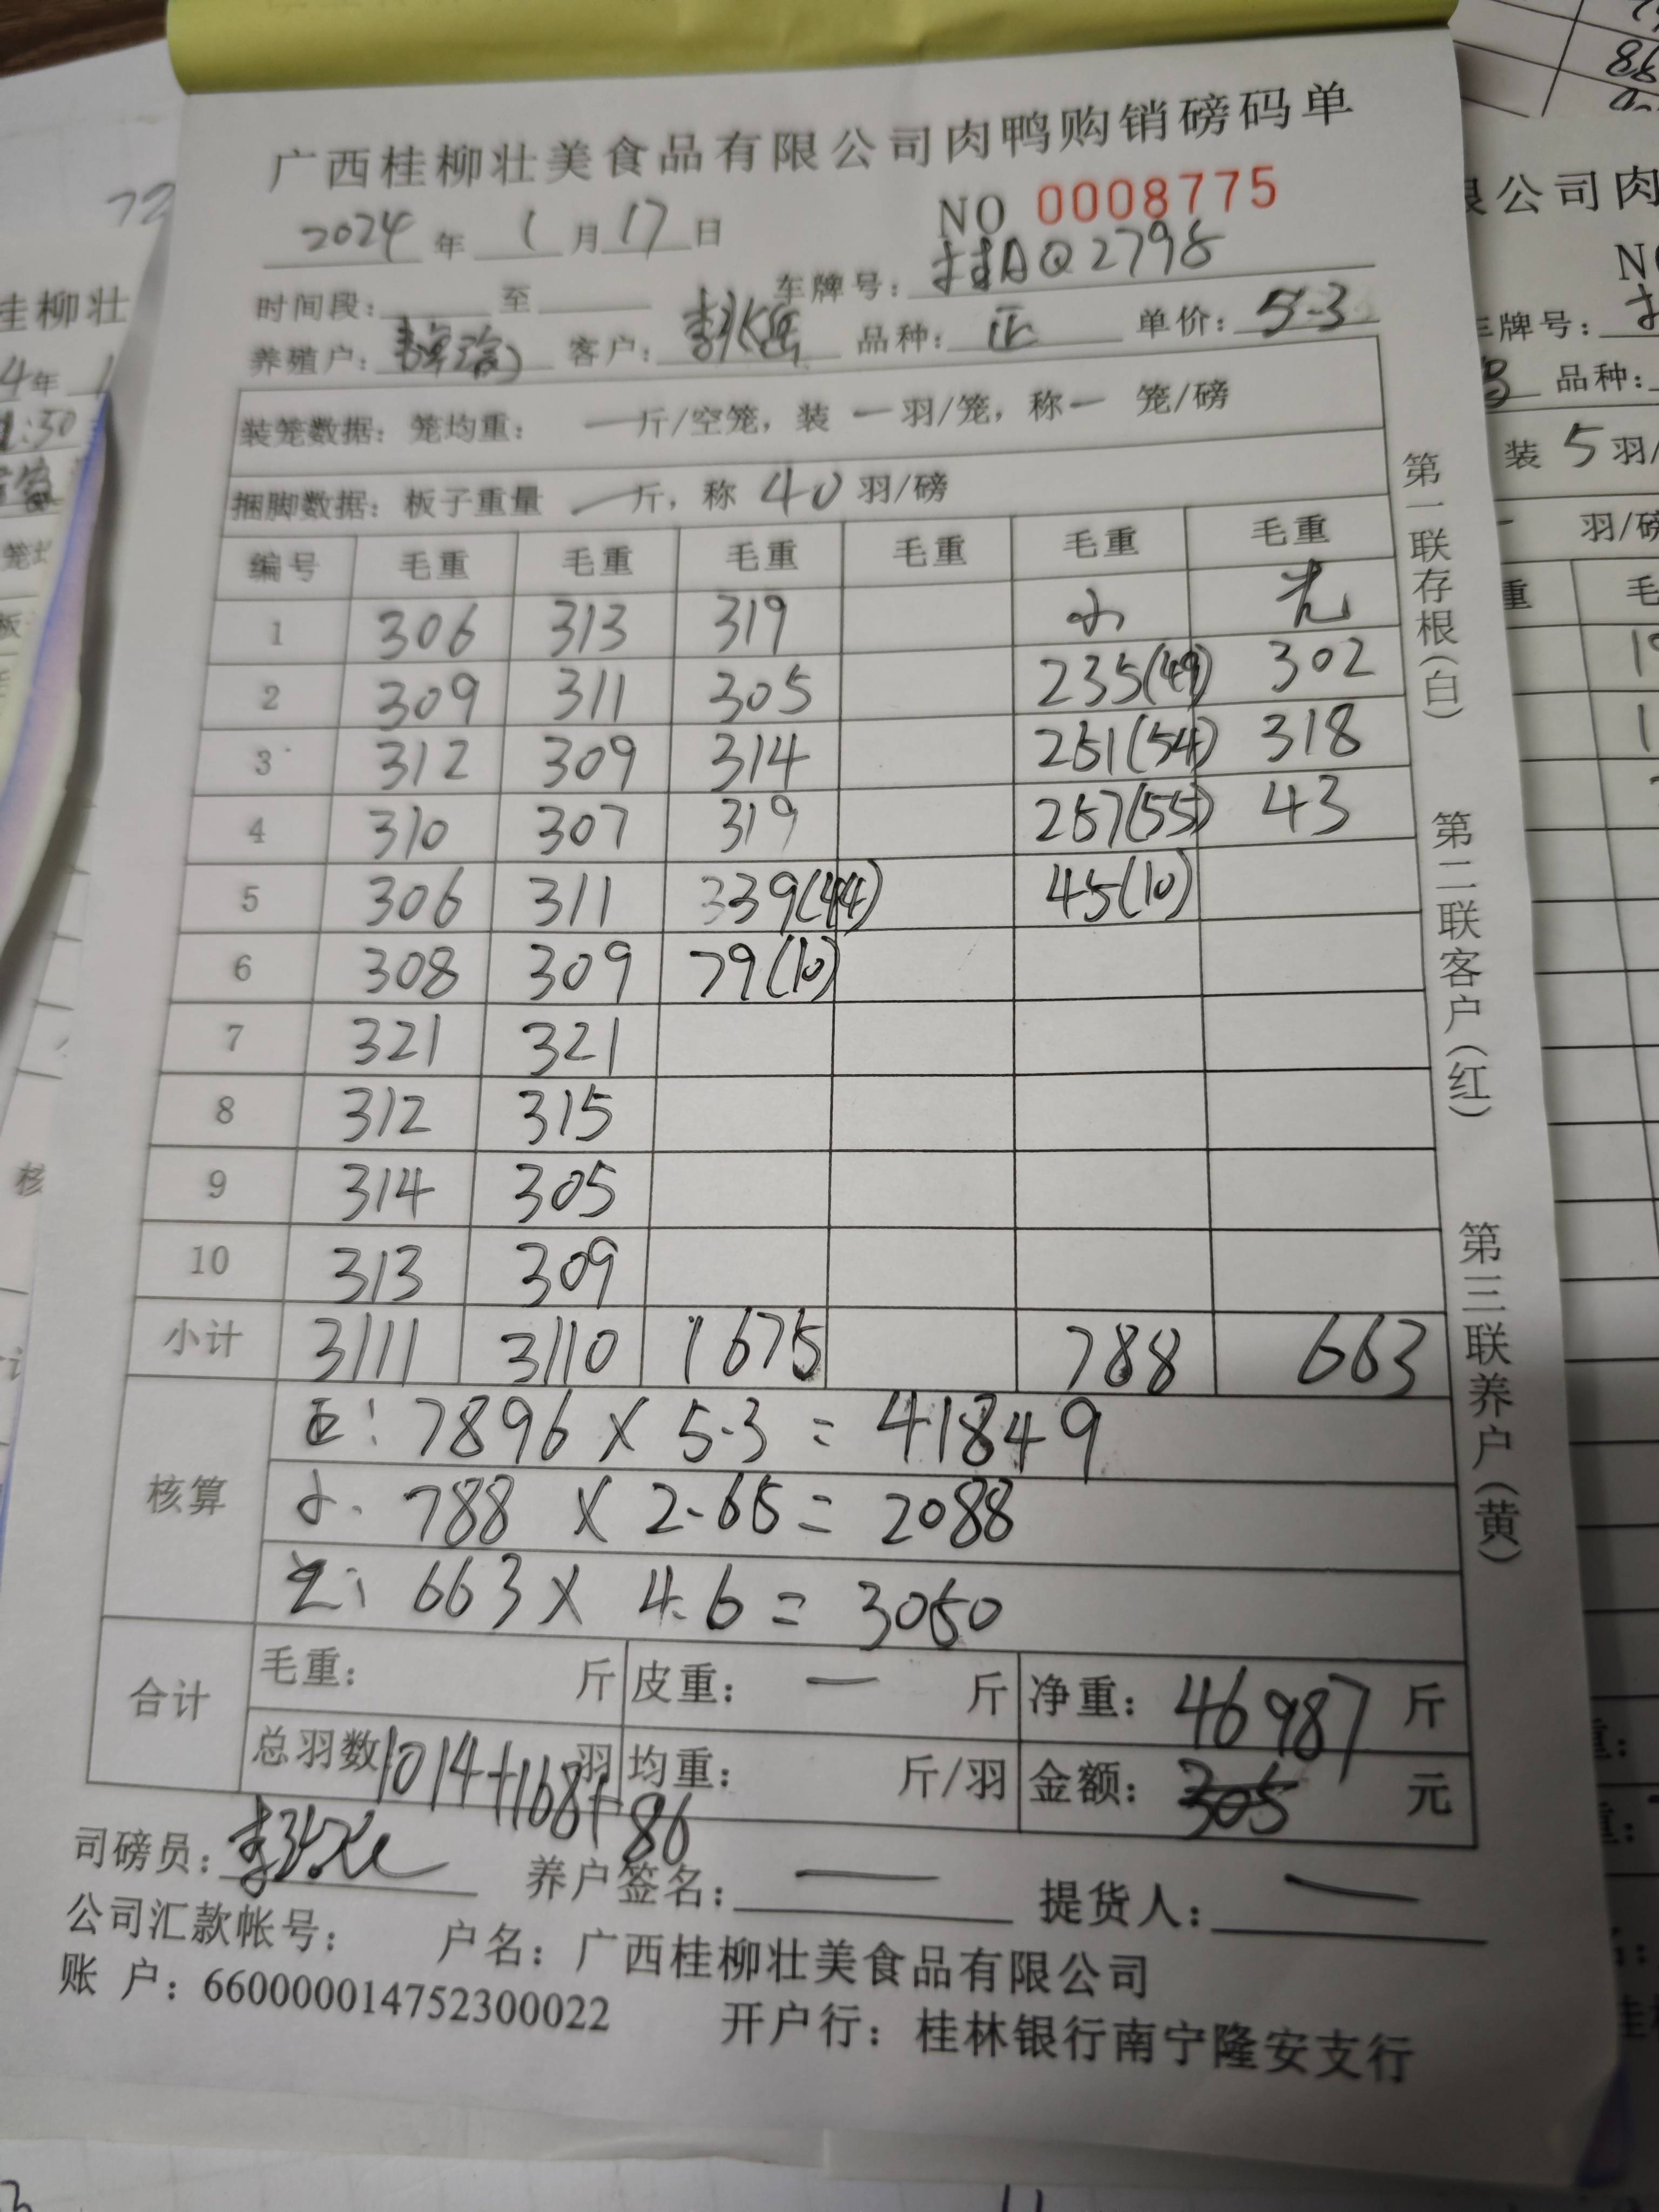 广西桂柳壮美食品有限公司肉鸭购销磅码单
2024 年 1 月 17 日 NO 0008775
时间段: 至 车牌号: 桂AQ2798
养殖户: 客户: 品种: 正 单价: 5.3
装笼数据: 笼均重: 一 斤/空笼, 装 一 羽/笼, 称 一 笼/磅
捆脚数据: 板子重量 一 斤, 称 40 羽/磅
编号 毛重 毛重 毛重 毛重 毛重 毛重
1 306 313 319 小 光
2 309 311 305 235(49) 302
3 312 309 314 251(54) 318
4 310 307 319 257(55) 43
5 306 311 339(44) 45(10)
6 308 309 79(10)
7 321 321
8 312 315
9 314 305
10 313 309
小计 3111 3110 1675 788 663
核算
正: 7896 × 5.3 = 41849
小. 788 × 2.65 = 2088
光: 663 × 4.6 = 3050
合计
毛重: 斤 皮重: 一 斤 净重: 46987 斤
总羽数 1014+168+86 羽 均重: 斤/羽 金额: 305 元
司磅员: 养户签名: 一 提货人: 一
公司汇款帐号: 户名: 广西桂柳壮美食品有限公司
账 户: 660000014752300022 开户行: 桂林银行南宁隆安支行
第一联存根(白)
第二联客户(红)
第三联养户(黄)
72
桂柳壮
4年 1
:30
核
公司肉
车牌号:
品种:
装 5 羽/
羽/磅